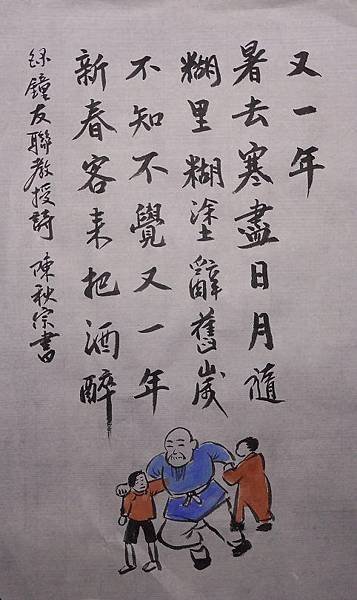 又一年
暑去寒盡日月隨
糊里糊塗辭舊歲
不知不覺又一年
新春客来把酒醉
錄鐘友聯教授詩 陳秋宗書